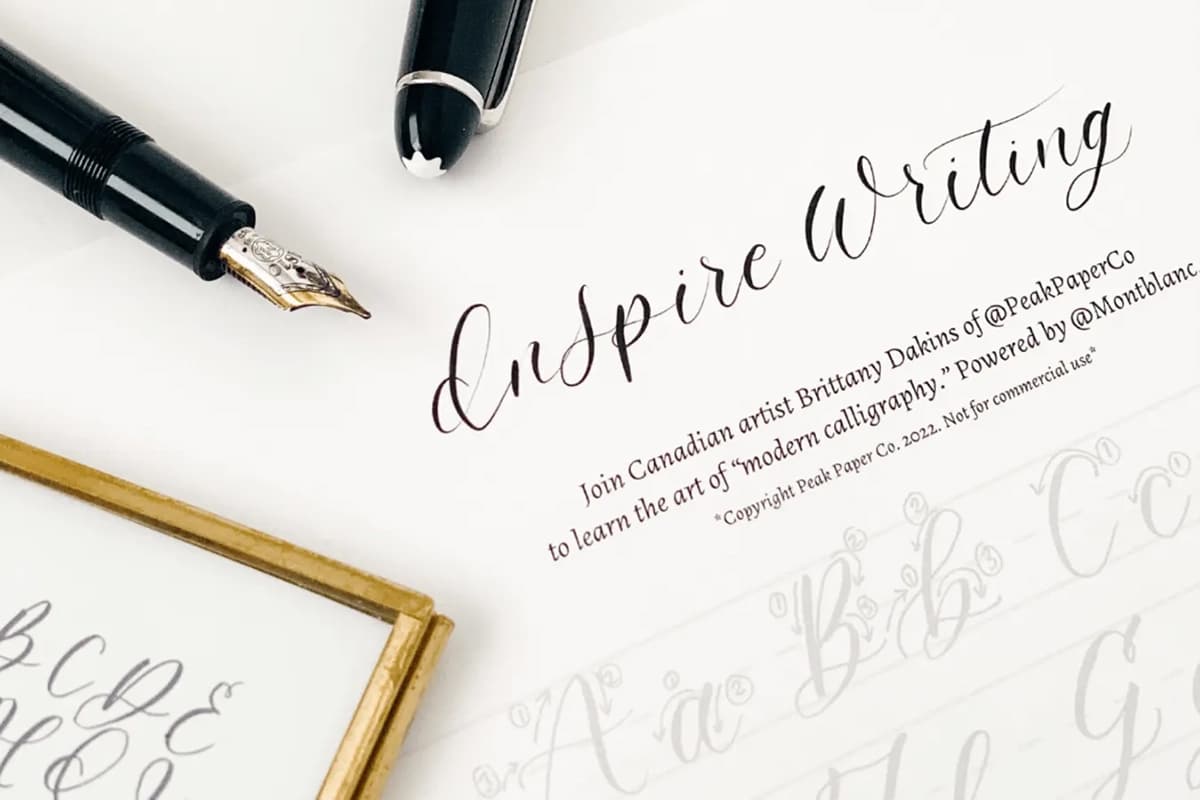 Inspire Writing
Join Canadian artist Brittany Dakins of @PeakPaperCo
to learn the art of “modern calligraphy.” Powered by @Montblanc.
*Copyright Peak Paper Co. 2022. Not for commercial use*
1 2 3 A a 1 2 1 2 3 B b 1 2 3 C 1 c 1
G
B C D E